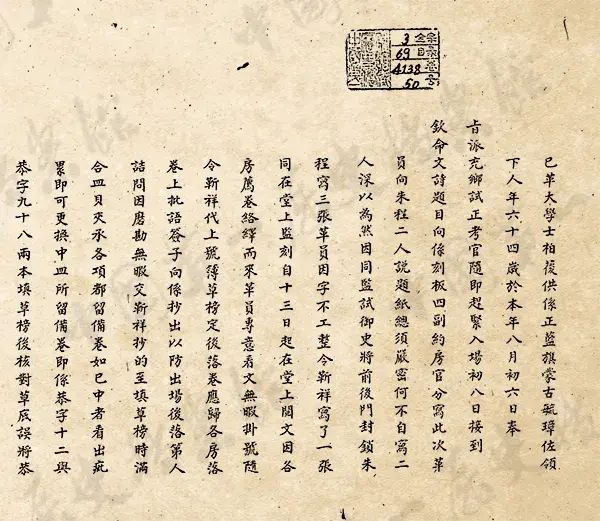 3
69
4138
50
已革大學士柏葰供係正藍旗蒙古毓璋佐領
下人年六十四歲於本年八月初六日奉
旨派充鄉試正考官隨即趕緊入場初八日接到
欽命文詩題目向係刻板四副約房官分寫此次革
員向朱程二人説題紙總須嚴密何不自寫二
人深以為然因同監試御史將前後門封鎖朱
程寫三張革員因字不工整令靳祥寫了一張
同在堂上監刻自十三日起在堂上閱文因各
房薦卷絡繹而來革員專意看文無暇掛號隨
令靳祥代上號簿草榜定後落卷應歸各房落
卷上批語簽子向係抄出以防出場後落第人
詰問因磨勘無暇交靳祥抄的至填草榜時滿
合皿貝夾承各項都留備卷如已中者看出疵
累即可更換中皿所留備卷即係恭字十二與
恭字九十八兩本填草榜後核對草底誤將恭